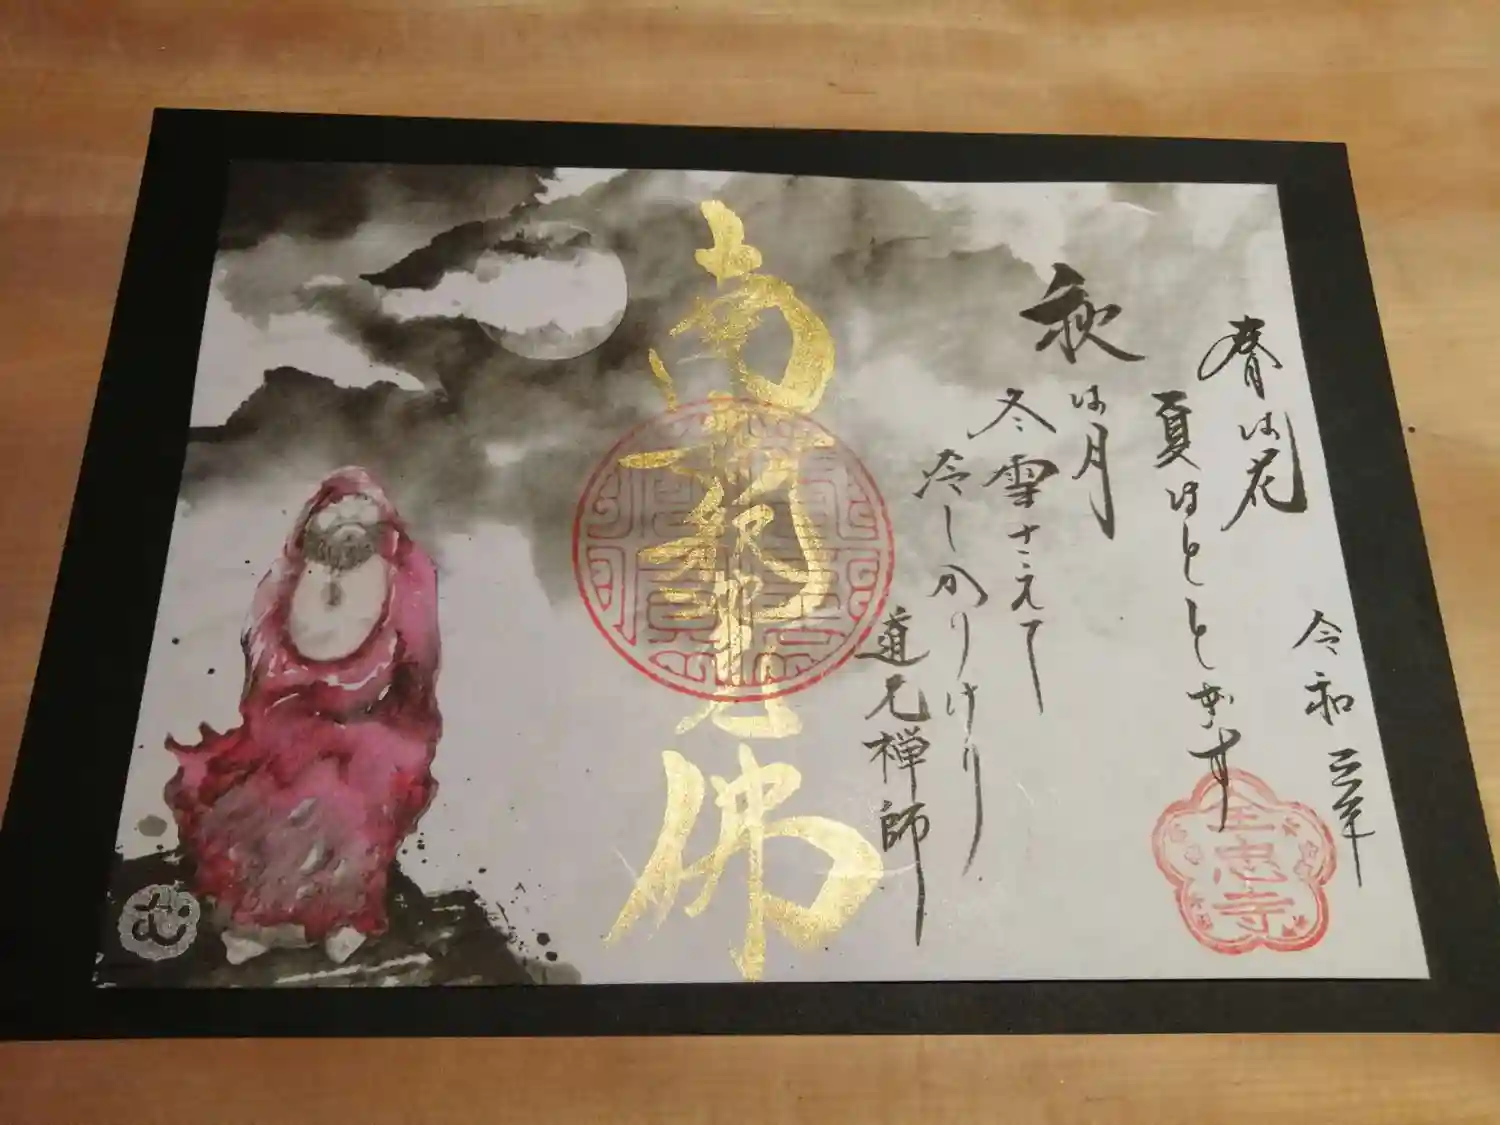 令和三年
春は花
夏はほととぎす
秋は月
冬雪さえて
冷しかりけり
道元禅師
南無釈迦牟尼佛
全忠寺
む